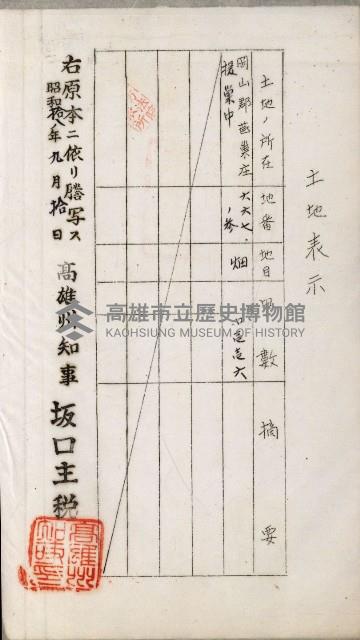 土地表示
土地ノ所在 地番 地目 甲數 摘要
岡山郡燕巢庄 六六七ノ 畑
援巢中 參
右原本ニ依リ謄写ス
昭和拾八年九月拾日
高雄州知事 坂口主税
高雄州知事印
高雄市立歷史博物館
KAOHSIUNG MUSEUM OF HISTORY